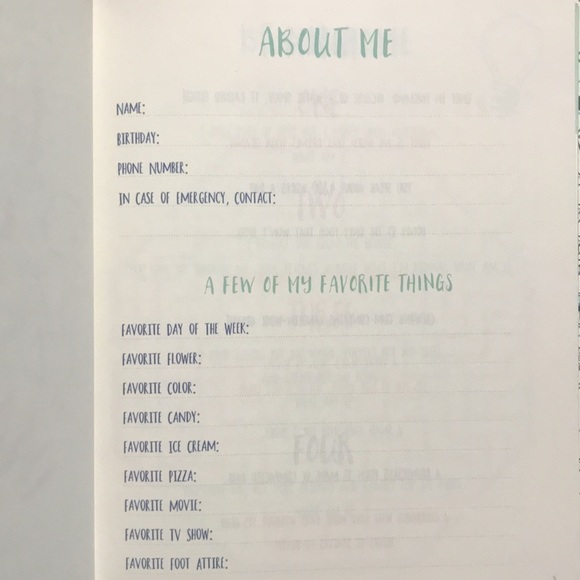 ABOUT ME
NAME:
BIRTHDAY:
PHONE NUMBER:
IN CASE OF EMERGENCY, CONTACT:
A FEW OF MY FAVORITE THINGS
FAVORITE DAY OF THE WEEK:
FAVORITE FLOWER:
FAVORITE COLOR:
FAVORITE CANDY:
FAVORITE ICE CREAM:
FAVORITE PIZZA:
FAVORITE MOVIE:
FAVORITE TV SHOW:
FAVORITE FOOT ATTIRE: